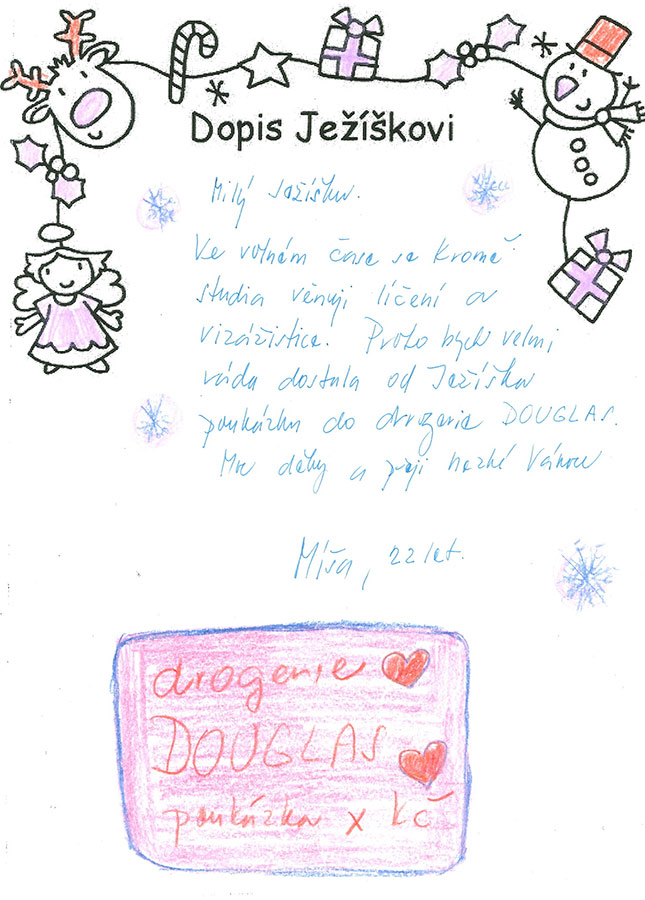 Dopis Ježíškovi
Milý Ježíšku.
Ve volném čase se kromě
studia věnuji líčení a
vizážistice. Proto bych velmi
ráda dostala od Ježíška
poukázku do drogerie DOUGLAS.
Moc děkuji a přeji hezké Vánoce
Míša, 22 let.
drogerie
DOUGLAS
poukázka x Kč